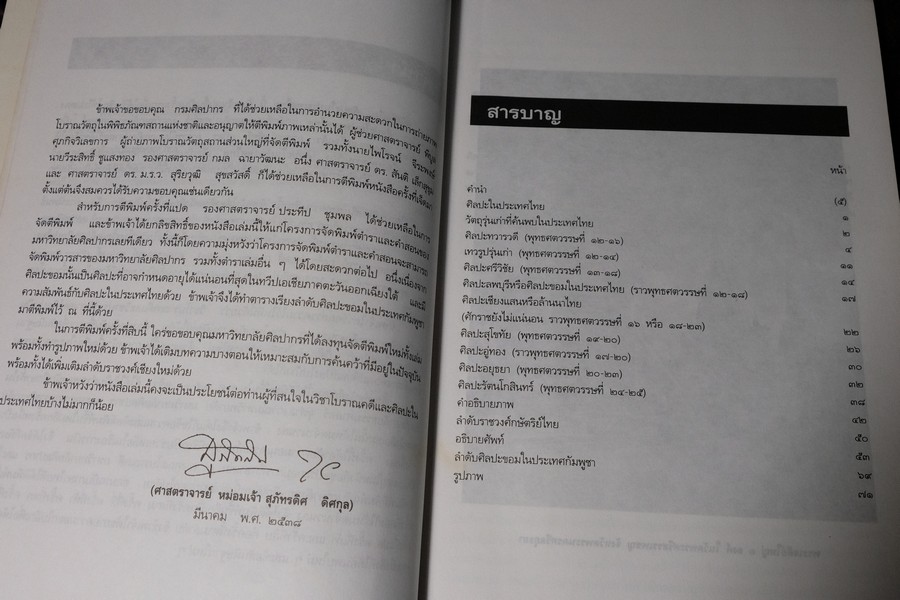 ข้าพเจ้าขอขอบคุณ กรมศิลปากร ที่ได้ช่วยเหลือในการอำนวยความสะดวกในการถ่ายภาพ
โบราณวัตถุในพิพิธภัณฑสถานแห่งชาติและอนุญาตให้ตีพิมพ์ภาพเหล่านั้นได้ ผู้ช่วยศาสตราจารย์
ศุภกิจวิเลขการ ผู้ถ่ายภาพโบราณวัตถุสถานส่วนใหญ่ที่จัดตีพิมพ์ รวมทั้งนายไพโรจน์
นายวีระสิทธิ์ ชูแสงทอง รองศาสตราจารย์ กมล ฉายาวัฒนะ อนึ่ง ศาสตราจารย์ ดร. สันติ เล็กสุขุม
และ ศาสตราจารย์ ดร. ม.ร.ว. สุริยวุฒิ สุขสวัสดิ์ ก็ได้ช่วยเหลือในการตีพิมพ์หนังสือครั้งที่เจ็ดมา
ตั้งแต่ต้นจึงสมควรได้รับความขอบคุณเช่นเดียวกัน
สำหรับการตีพิมพ์ครั้งที่แปด รองศาสตราจารย์ ประทีป ชุมพล ได้ช่วยเหลือในการ
จัดตีพิมพ์ และข้าพเจ้าได้ยกลิขสิทธิ์ของหนังสือเล่มนี้ให้แก่โครงการจัดพิมพ์ตำราและคำสอนของ
มหาวิทยาลัยศิลปากรเลยทีเดียว ทั้งนี้ก็โดยความมุ่งหวังว่าโครงการจัดพิมพ์ตำราและคำสอนจะสามารถ
จัดพิมพ์วารสารของมหาวิทยาลัยศิลปากร รวมทั้งตำราเล่มอื่น ๆ ได้โดยสะดวกต่อไป อนึ่งเนื่องจาก
ศิลปะขอมนั้นเป็นศิลปะที่อาจกำหนดอายุได้แน่นอนที่สุดในทวีปเอเชียภาคตะวันออกเฉียงใต้ และมี
ความสัมพันธ์กับศิลปะในประเทศไทยด้วย ข้าพเจ้าจึงได้ทำตารางเรียงลำดับศิลปะขอมในประเทศกัมพูชา
มาตีพิมพ์ไว้ ณ ที่นี้ด้วย
ในการตีพิมพ์ครั้งที่สิบนี้ ใคร่ขอขอบคุณมหาวิทยาลัยศิลปากรที่ได้ลงทุนจัดพิมพ์ใหม่ทั้งเล่ม
พร้อมทั้งทำรูปภาพใหม่ด้วย ข้าพเจ้าได้เติมบทความบางตอนให้เหมาะสมกับการค้นคว้าที่มีอยู่ในปัจจุบัน
พร้อมทั้งได้เพิ่มเติมลำดับราชวงศ์เชียงใหม่ด้วย
ข้าพเจ้าหวังว่าหนังสือเล่มนี้คงจะเป็นประโยชน์ต่อท่านผู้ที่สนใจในวิชาโบราณคดีและศิลปะใน
ประเทศไทยบ้างไม่มากก็น้อย
(ศาสตราจารย์ หม่อมเจ้า สุภัทรดิศ ดิศกุล)
มีนาคม พ.ศ. ๒๕๓๘
สารบาญ
หน้า
คำนำ (๕)
ศิลปะในประเทศไทย ๑
วัตถุรุ่นเก่าที่ค้นพบในประเทศไทย ๒
ศิลปะทวารวดี (พุทธศตวรรษที่ ๑๒-๑๖) ๔
เทวรูปรุ่นเก่า (พุทธศตวรรษที่ ๑๒-๑๔) ๑๑
ศิลปะศรีวิชัย (พุทธศตวรรษที่ ๑๓-๑๘) ๑๔
ศิลปะลพบุรีหรือศิลปะขอมในประเทศไทย (ราวพุทธศตวรรษที่ ๑๒-๑๘) ๑๗
ศิลปะเชียงแสนหรือล้านนาไทย
(ศักราชยังไม่แน่นอน ราวพุทธศตวรรษที่ ๑๖ หรือ ๑๘-๒๓) ๒๒
ศิลปะสุโขทัย (พุทธศตวรรษที่ ๑๙-๒๐) ๒๖
ศิลปะอู่ทอง (ราวพุทธศตวรรษที่ ๑๗-๒๐) ๓๐
ศิลปะอยุธยา (พุทธศตวรรษที่ ๒๐-๒๓) ๓๒
ศิลปะรัตนโกสินทร์ (พุทธศตวรรษที่ ๒๔-๒๕) ๓๘
คำอธิบายภาพ ๔๒
ลำดับราชวงศ์กษัตริย์ไทย ๕๐
อธิบายศัพท์ ๕๓
ลำดับศิลปะขอมในประเทศกัมพูชา ๖๙
รูปภาพ ๗๑